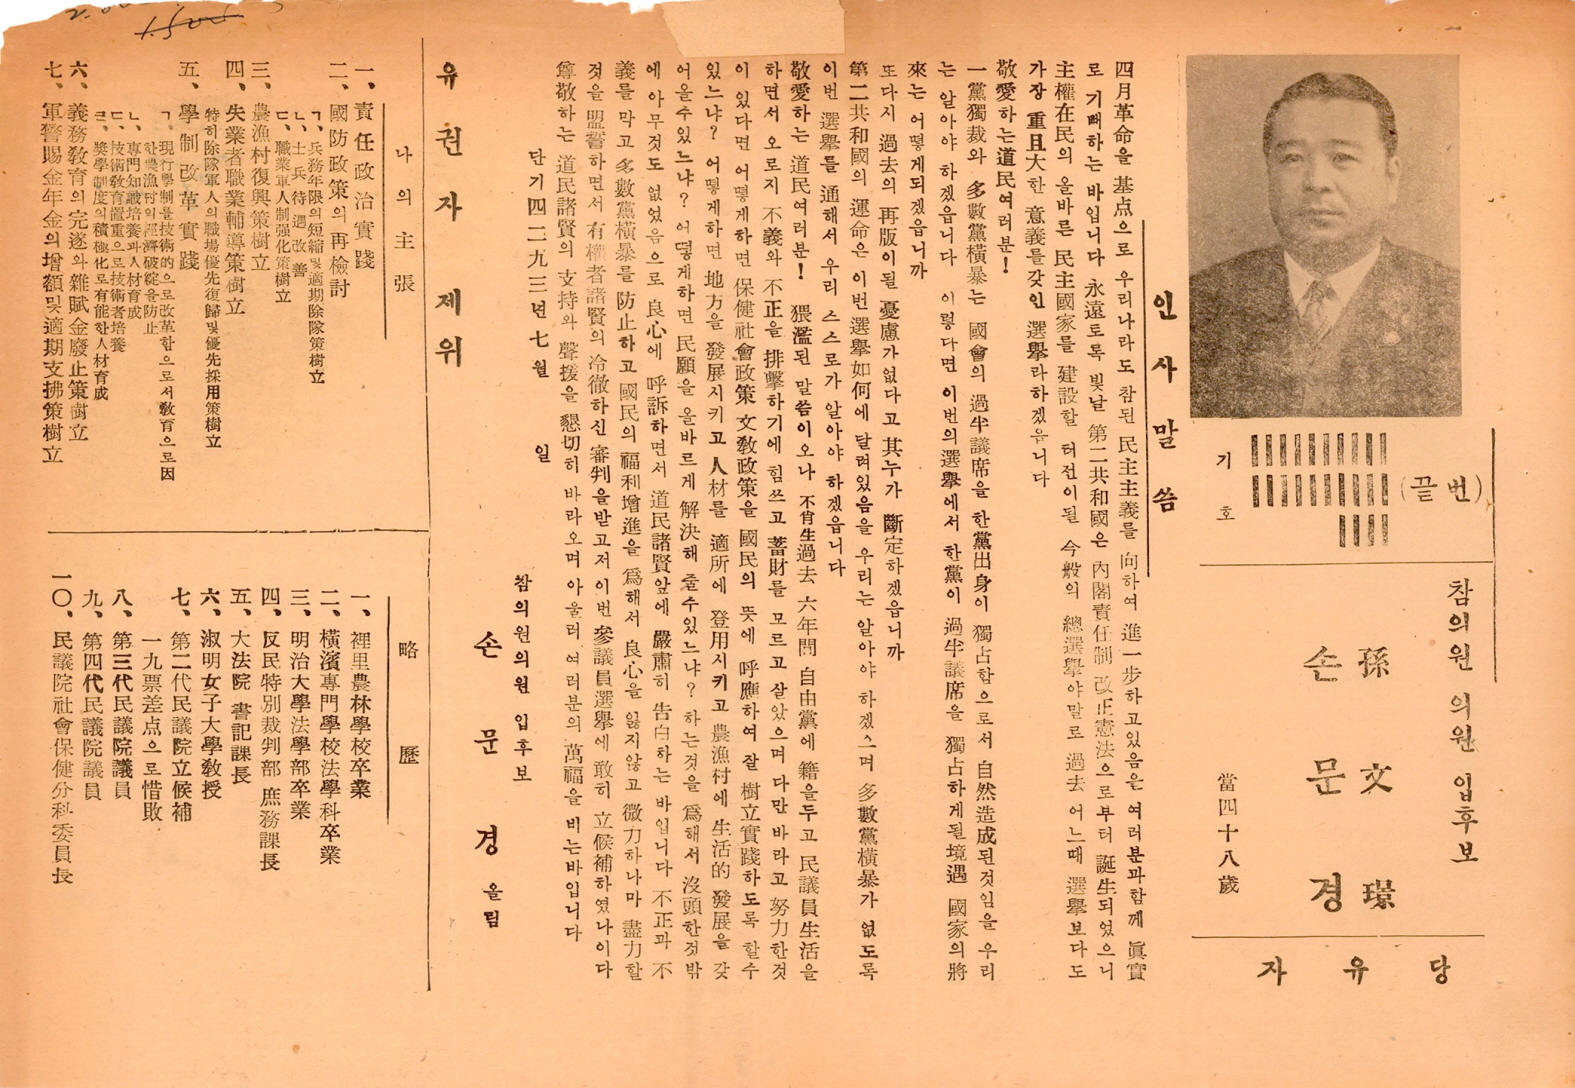 기호
(끝번)
참의원 의원 입후보
孫文璟
손문경
當四十八歲
자유당
인사말씀
四月革命을 基点으로 우리나라도 참된 民主主義를 向하여 進一步하고있음을 여러분과함께 眞實
로 기뻐하는 바입니다 永遠토록 빛날 第二共和國은 內閣責任制 改正憲法으로부터 誕生되였으니
主權在民의 올바른 民主國家를 建設할 터전이될 今般의 總選擧야말로 過去 어느때 選擧보다도
가장 重且大한 意義를갖인 選擧라하겠읍니다
敬愛하는道民여러분!
一黨獨裁와 多數黨橫暴는 國會의 過半議席을 한黨出身이 獨占함으로서 自然造成된것임을 우리
는 알아야 하겠읍니다 이렇다면 이번의選擧에서 한黨이 過半議席을 獨占하게될境遇 國家의將
來는 어떻게되겠읍니까
또다시 過去의 再版이될 憂慮가없다고 其누가 斷定하겠읍니까
第二共和國의 運命은 이번選擧如何에 달려있음을 우리는 알아야 하겠스며 多數黨橫暴가 없도록
이번 選擧를 通해서 우리 스스로가 알아야 하겠읍니다
敬愛하는 道民여러분! 猥濫된 말씀이오나 不肖生過去 六年間 自由黨에 籍을두고 民議員生活을
하면서 오로지 不義와 不正을 排擊하기에 힘쓰고 蓄財를 모르고 살았으며 다만 바라고 努力한것
이 있다면 어떻게하면 保健社會政策 文敎政策을 國民의 뜻에 呼應하여 잘 樹立實踐하도록 할수
있느냐? 어떻게하면 地方을 發展시키고 人材를 適所에 登用시키고 農漁村에 生活的 發展을 갖
어올수있느냐? 어떻게하면 民願을 올바르게 解決해 줄수있느냐? 하는것을 爲해서 沒頭한것밖
에 아무것도 없었음으로 良心에 呼訴하면서 道民諸賢앞에 嚴肅히 告白하는 바입니다 不正과 不
義를 막고 多數黨橫暴를 防止하고 國民의 福利增進을 爲해서 良心을 잃지않고 微力하나마 盡力할
것을 盟誓하면서 有權者諸賢의 冷徹하신 審判을받고저 이번 參議員選擧에 敢히 立候補하였나이다
尊敬하는 道民諸賢의 支持와 聲援을 懇切히 바라오며 아울러 여러분의 萬福을 비는바입니다
단기四二九三년七월 일
참의원의원 입후보
손문경 올림
유권자 제위
나의主張
一、責任政治實踐
二、國防政策의再檢討
ㄱ、兵務年限의短縮및適期除隊策樹立
ㄴ、士兵待遇改善
ㄷ、職業軍人制强化策樹立
三、農漁村復興策樹立
四、失業者職業輔導策樹立
特히除隊軍人의職場優先復歸및優先採用策樹立
五、學制改革實踐
ㄱ、現行學制를技術的으로改革함으로서敎育으로因
한農漁村의經濟破綻을防止
ㄴ、專門知識培養과人材育成
ㄷ、技術敎育置重으로技術者培養
ㄹ、獎學制度의積極化로有能한人材育成
六、義務敎育의完遂와雜賦金廢止策樹立
七、軍警賜金年金의增額및適期支拂策樹立
略歷
一、裡里農林學校卒業
二、橫濱專門學校法學科卒業
三、明治大學法學部卒業
四、反民特別裁判部庶務課長
五、大法院書記課長
六、淑明女子大學敎授
七、第二代民議院立候補
一九票差点으로惜敗
八、第三代民議院議員
九、第四代民議院議員
一〇、民議院社會保健分科委員長